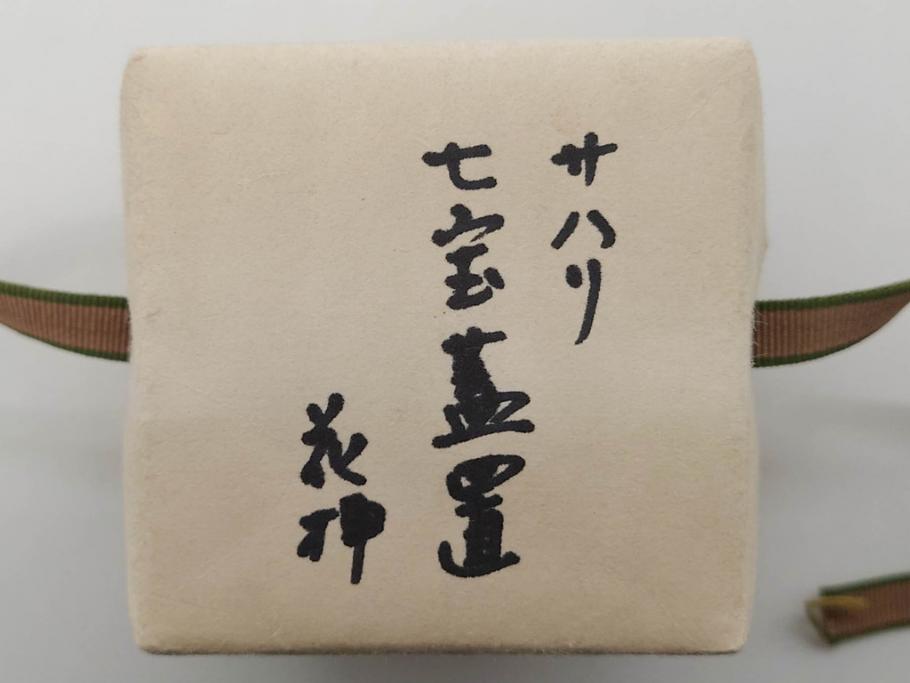 サハリ
七宝蓋置
花押